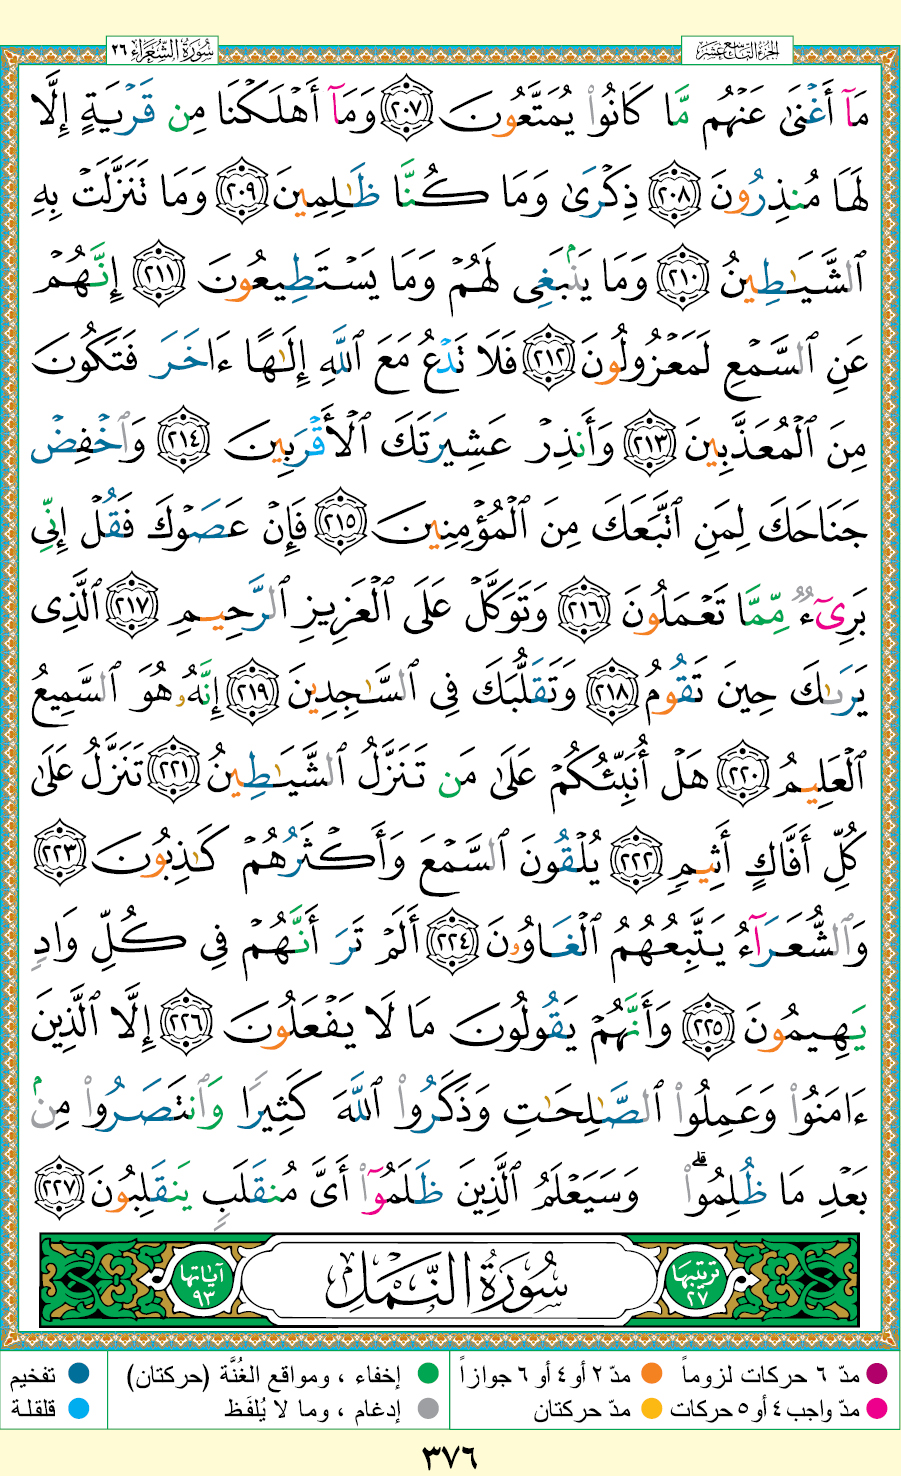 سُورَةُ الشُّعَرَاء ٢٦
الجزء التاسع عشر
مَآ أَغْنَىٰ عَنْهُم مَّا كَانُوا۟ يُمَتَّعُونَ ٢٠٧ وَمَآ أَهْلَكْنَا مِن قَرْيَةٍ إِلَّا
لَهَا مُنذِرُونَ ٢٠٨ ذِكْرَىٰ وَمَا كُنَّا ظَـٰلِمِينَ ٢٠٩ وَمَا تَنَزَّلَتْ بِهِ
ٱلشَّيَـٰطِينُ ٢١٠ وَمَا يَنۢبَغِى لَهُمْ وَمَا يَسْتَطِيعُونَ ٢١١ إِنَّهُمْ
عَنِ ٱلسَّمْعِ لَمَعْزُولُونَ ٢١٢ فَلَا تَدْعُ مَعَ ٱللَّهِ إِلَـٰهًا ءَاخَرَ فَتَكُونَ
مِنَ ٱلْمُعَذَّبِينَ ٢١٣ وَأَنذِرْ عَشِيرَتَكَ ٱلْأَقْرَبِينَ ٢١٤ وَٱخْفِضْ
جَنَاحَكَ لِمَنِ ٱتَّبَعَكَ مِنَ ٱلْمُؤْمِنِينَ ٢١٥ فَإِنْ عَصَوْكَ فَقُلْ إِنِّى
بَرِىٓءٌ مِّمَّا تَعْمَلُونَ ٢١٦ وَتَوَكَّلْ عَلَى ٱلْعَزِيزِ ٱلرَّحِيمِ ٢١٧ ٱلَّذِى
يَرَىٰكَ حِينَ تَقُومُ ٢١٨ وَتَقَلُّبَكَ فِى ٱلسَّـٰجِدِينَ ٢١٩ إِنَّهُۥ هُوَ ٱلسَّمِيعُ
ٱلْعَلِيمُ ٢٢٠ هَلْ أُنَبِّئُكُمْ عَلَىٰ مَن تَنَزَّلُ ٱلشَّيَـٰطِينُ ٢٢١ تَنَزَّلُ عَلَىٰ
كُلِّ أَفَّاكٍ أَثِيمٍ ٢٢٢ يُلْقُونَ ٱلسَّمْعَ وَأَكْثَرُهُمْ كَـٰذِبُونَ ٢٢٣
وَٱلشُّعَرَآءُ يَتَّبِعُهُمُ ٱلْغَاوُۥنَ ٢٢٤ أَلَمْ تَرَ أَنَّهُمْ فِى كُلِّ وَادٍ
يَهِيمُونَ ٢٢٥ وَأَنَّهُمْ يَقُولُونَ مَا لَا يَفْعَلُونَ ٢٢٦ إِلَّا ٱلَّذِينَ
ءَامَنُوا۟ وَعَمِلُوا۟ ٱلصَّـٰلِحَـٰتِ وَذَكَرُوا۟ ٱللَّهَ كَثِيرًا وَٱنتَصَرُوا۟ مِنۢ
بَعْدِ مَا ظُلِمُوا۟ ۗ وَسَيَعْلَمُ ٱلَّذِينَ ظَلَمُوٓا۟ أَىَّ مُنقَلَبٍ يَنقَلِبُونَ ٢٢٧
ترتيبها ٢٧ سُورَةُ النَّمْلِ آياتها ٩٣
مدّ ٦ حركات لزوماً مدّ ٢ أو ٤ أو ٦ جوازاً إخفاء ، ومواقع الغُنَّة (حركتان) تفخيم
مدّ واجب ٤ أو ٥ حركات مدّ حركتان إدغام ، وما لا يُلفَظ قلقلة
٣٧٦